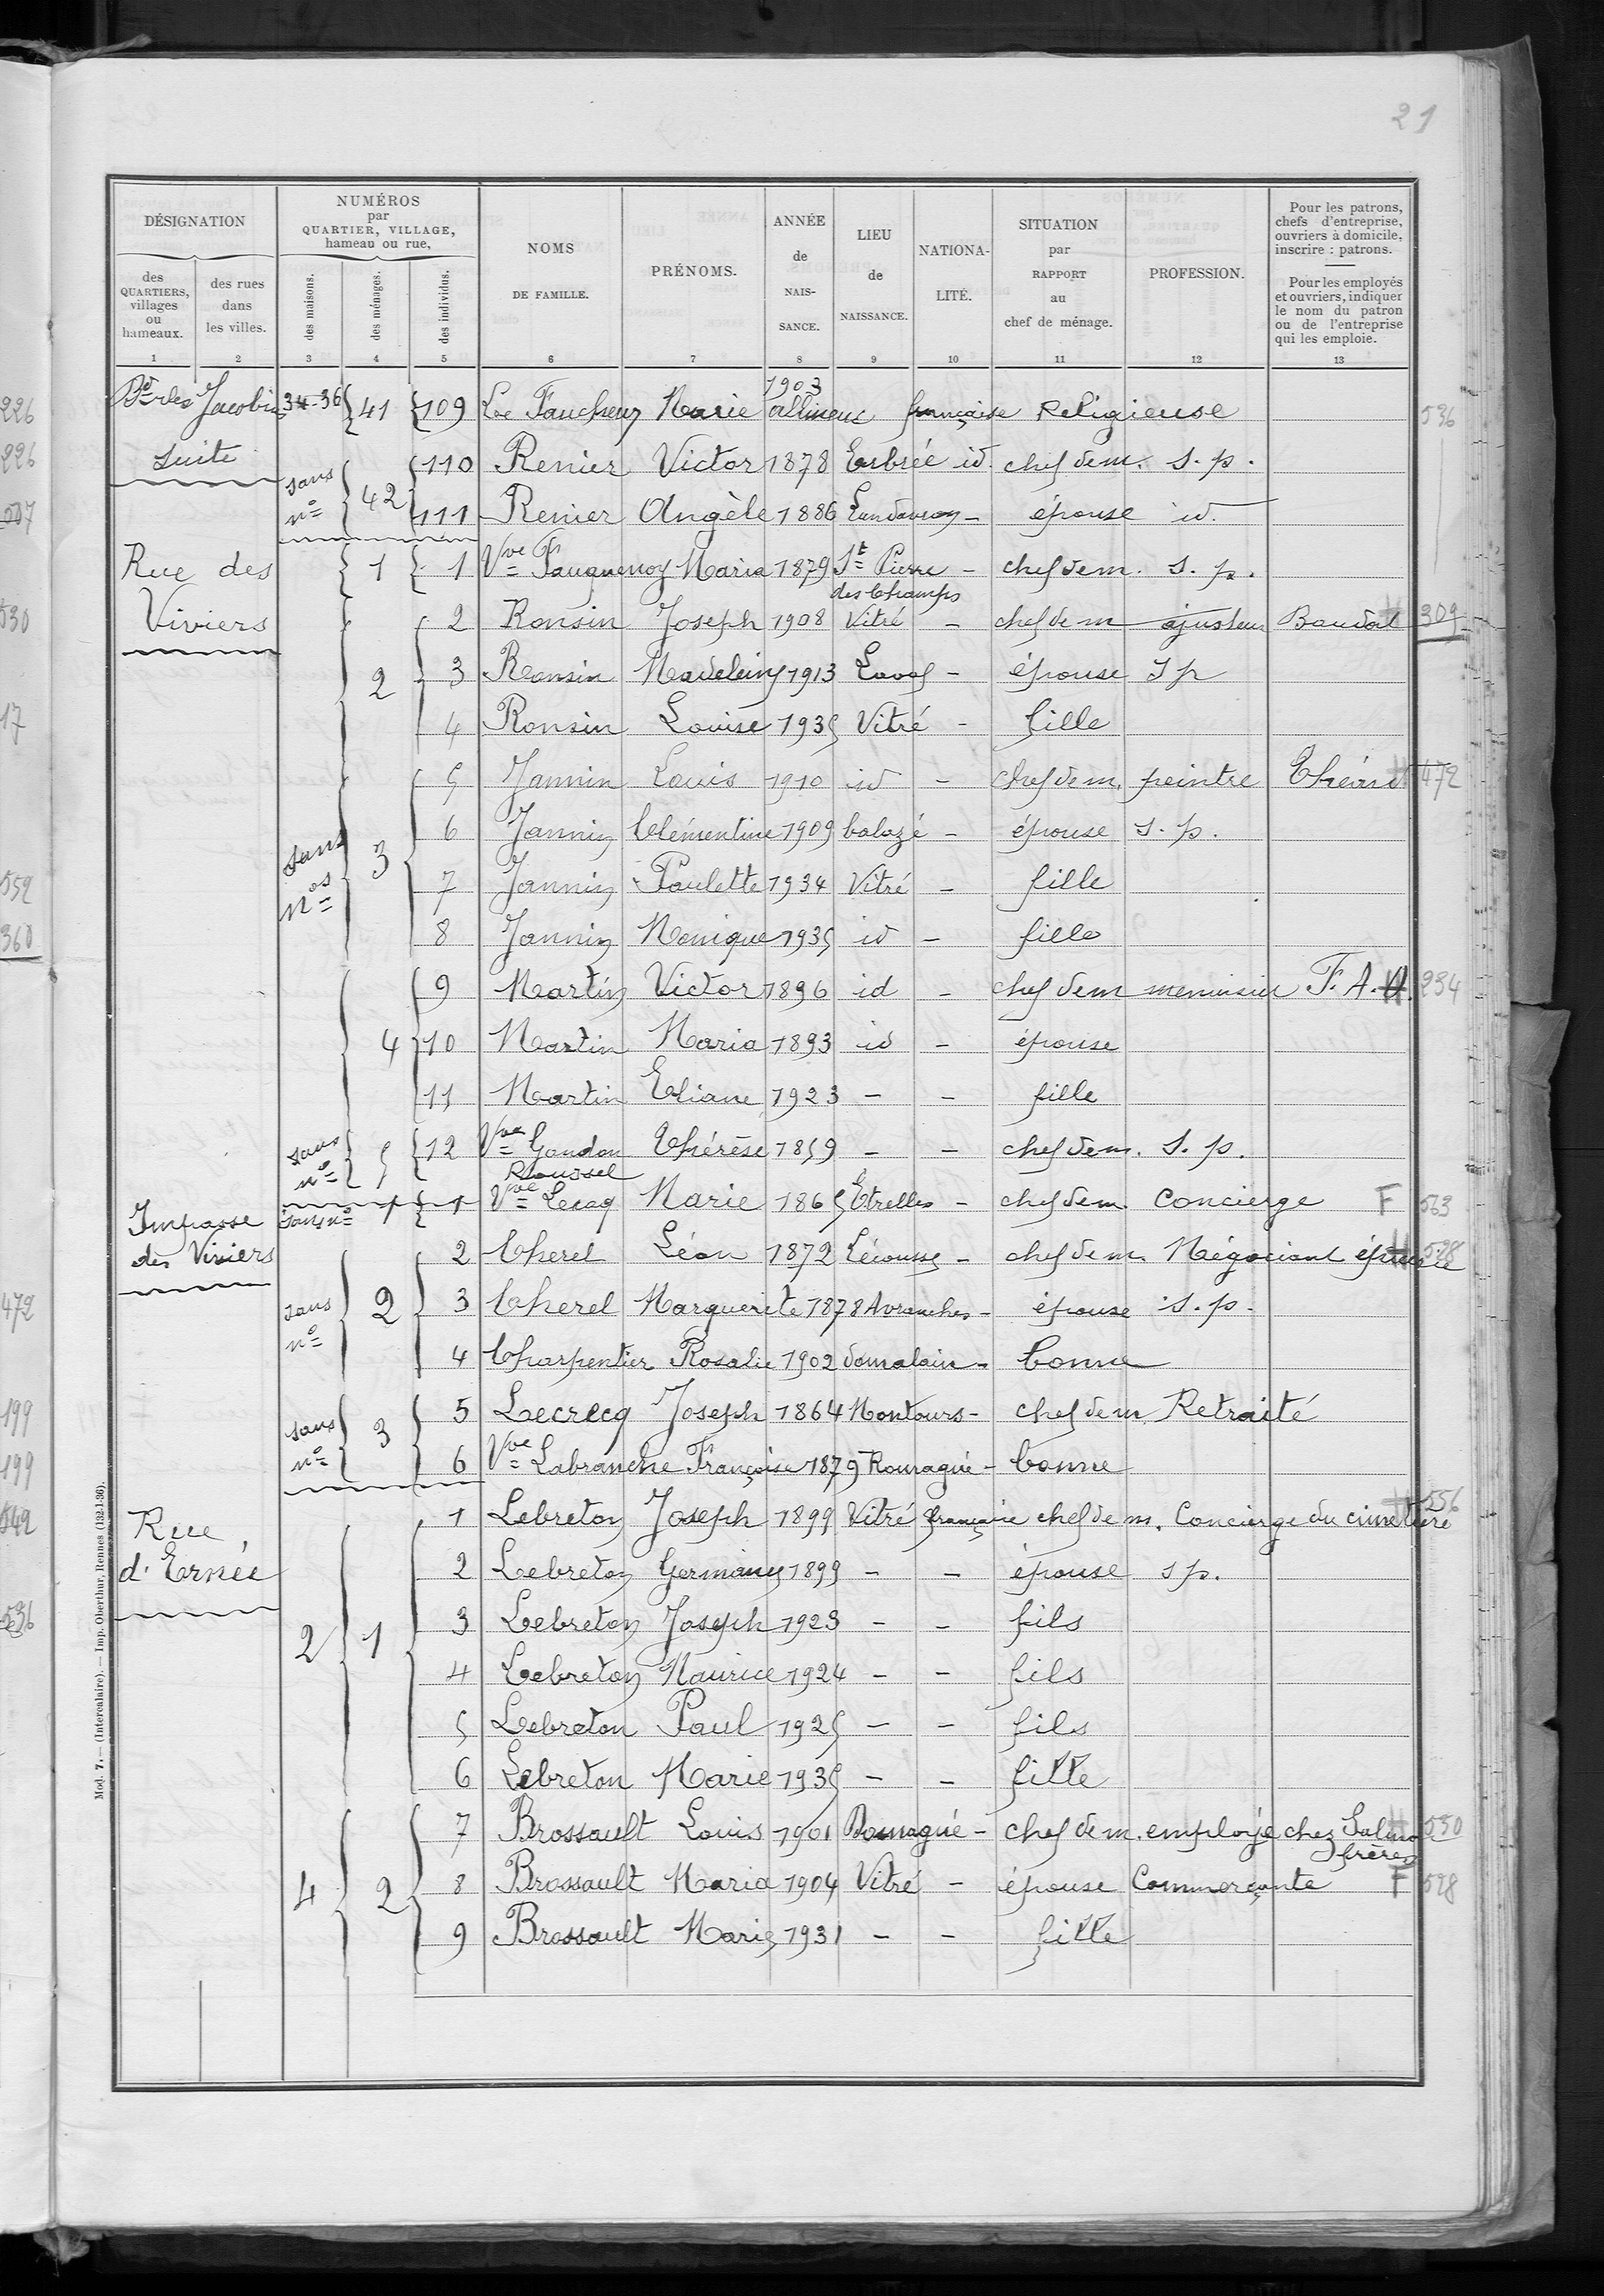 21
DÉSIGNATION
NUMÉROS
par
QUARTIER, VILLAGE,
hameau ou rue,
des
QUARTIERS,
villages
ou
hameaux.
des rues
dans
les villes.
des maisons.
des ménages.
des individus.
NOMS
DE FAMILLE.
PRÉNOMS.
ANNÉE
de
NAIS-
SANCE.
LIEU
de
NAISSANCE.
NATIONA-
LITÉ.
SITUATION
par
RAPPORT
au
chef de ménage.
PROFESSION.
Pour les patrons,
chefs d'entreprise,
ouvriers à domicile,
inscrire : patrons.
Pour les employés
et ouvriers, indiquer
le nom du patron
ou de l'entreprise
qui les emploie.
1 2 3 4 5 6 7 8 9 10 11 12 13
Bd des Jacobins 34-36 41 109 Le Faucheux Marie 1903 allineuc française Religieuse 536
suite sans n° 42 110 Renier Victor 1878 Erbrée id. chef de m. s. p.
111 Renier Angèle 1886 Landavran - épouse id.
Rue des Viviers 1 1 Vve Fauquenoy Maria 1879 St Pierre des Champs - chef de m. s. p.
2 2 Ronsin Joseph 1908 Vitré - chef de m ajusteur 309
3 Ronsin Madeleine 1913 Laval - épouse s p
4 Ronsin Louise 1935 Vitré - fille
sans nos 3 5 Jannin Louis 1910 id - chef de m. peintre 472
6 Jannin Clémentine 1909 balazé - épouse s. p.
7 Jannin Paulette 1934 Vitré - fille
8 Jannin Monique 1935 id - fille
4 9 Martin Victor 1896 id - chef de m menuisier F. A. 234
10 Martin Maria 1893 id - épouse
11 Martin Eliane 1923 - - fille
sans n° 5 12 Vve Gandon Thérèse 1859 - - chef de m. s. p.
Roussel
Impasse des Viviers sans n° 1 1 Vve Lecoq Marie 1865 Etrelles - chef de m. Concierge F 563
2 Cherel Léon 1872 Lécousse - chef de m. Négociant 528
sans n° 2 3 Cherel Marguerite 1878 Avranches - épouse s. p.
4 Charpentier Rosalie 1902 domalain - bonne
sans n° 3 5 Lecrecq Joseph 1864 Montours - chef de m Retraité
6 Vve Labranche Françoise 1879 Romagné - bonne
Rue d'Ernée 2 1 1 Lebreton Joseph 1899 Vitré française chef de m. Concierge du cimetière 556
2 Lebreton Germaine 1899 - - épouse s p.
3 Lebreton Joseph 1923 - - fils
4 Lebreton Maurice 1924 - - fils
5 Lebreton Paul 1925 - - fils
6 Lebreton Marie 1935 - - fille
4 2 7 Brossault Louis 1901 Romagné - chef de m. employé chez Salmon frères 550
8 Brossault Maria 1904 Vitré - épouse Commerçante F 528
9 Brossault Marie 1931 - - fille
Mod. 7. — (Intercalaire). — Imp. Oberthur, Rennes (132-1-36).
226
226
507
530
17
559
360
472
199
199
549
536